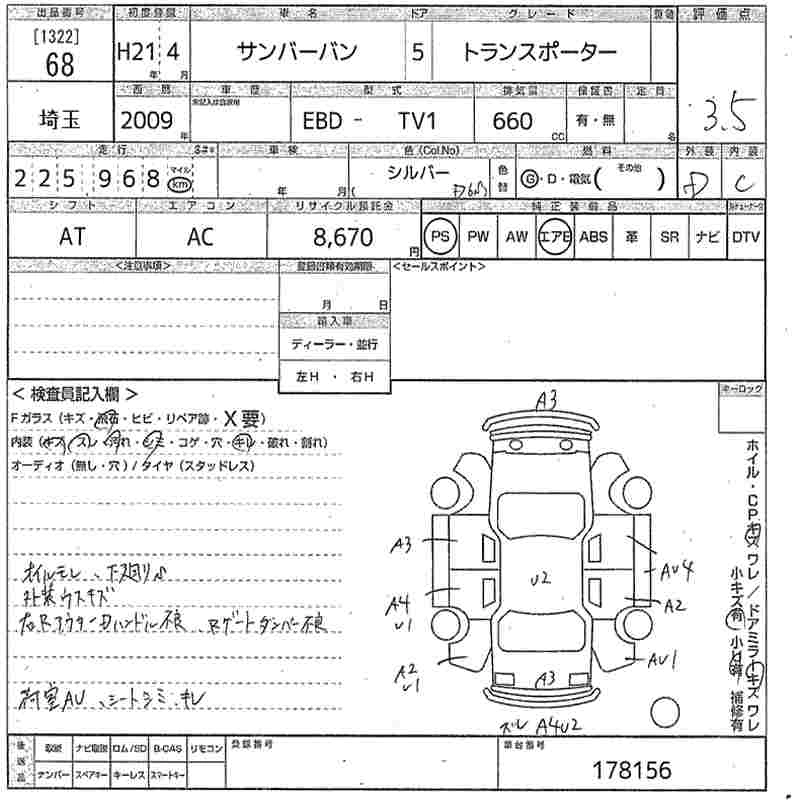 出品番号 初度登録 車名 ドア グレード 装備 評価点
[1322]
68 H21 4 サンバーバン 5 トランスポーター
年 月
西暦 車歴 型式 排気量 保証書 定員
未記入は自家用
埼玉 2009 年 EBD - TV1 660 CC 有・無 名 3.5
走行 S## 車検 色(Col.No) 燃料 外装 内装
225,968 マイル km 年 月( シルバー 色替 G・D・電気( その他 ) D C
シフト エアコン リサイクル預託金 純正装備品
AT AC 8,670円 PS PW AW エアB ABS 革 SR ナビ DTV
<注意事項> 登録書類有効期限 <セールスポイント>
月 日
輸入車
ディーラー・並行
左H ・ 右H
< 検査員記入欄 > キーロック
Fガラス(キズ・飛石・ヒビ・リペア跡・X要)
内装(キズ・スレ・汚れ・シミ・コゲ・穴・キレ・破れ・割れ)
オーディオ(無し・穴)/タイヤ(スタッドレス)
オイルモレ、下廻りサ
外装ウスキズ
右Rアウター ハンドル不良 Rゲートダンパー不良
荷室AU、シートシミ、キレ
A3
A3
U2
AU4
A4
U1
A2
A2
U1
AU1
A3
ズレ A4U2
ホイル・CPキズワレ/ドアミラーキズワレ
小キズ有 小凹有 補修有
後送品 取説 ナビ取説 ロム/SD B-CAS リモコン 登録番号 車台番号
ナンバー スペアキー キーレス スマートキー 178156